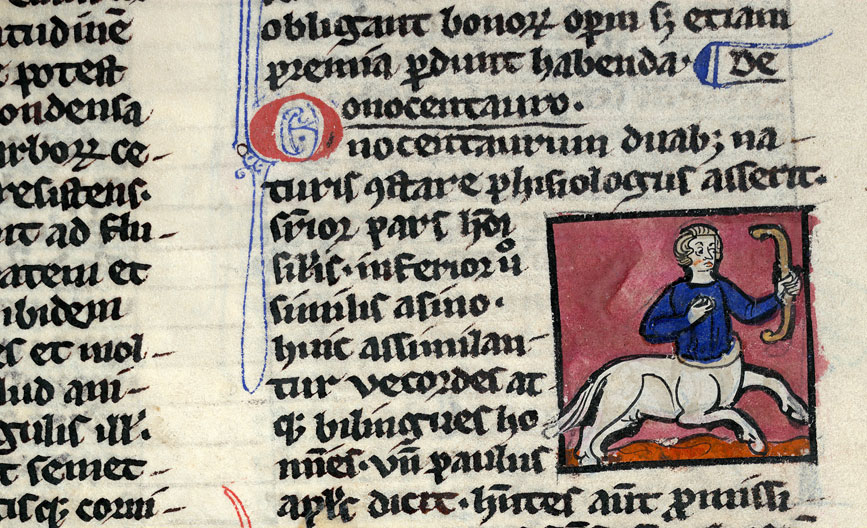 tudinē
potest
ondensa
rboꝝ ce-
resistens·
ut ad flu-
atem et
ibidem
es et mol-
lud ani-
gulis ill'.
t semet-
tisq; corni-
obligant bonoꝝ opm sꝫ etiam
premia ꝑdunt habenda· De
onocentauro·
Onocentaurum duabꝫ na-
turis ꝯstare phisiologus asserit·
supior pars hōi
silis· inferior ů
similis asino·
huic assimilan-
tur vecordes at
qꝫ bilingues ho
mines· vn̄ paulus
apl's dicit· hn̄tes aūt ꝓmissi